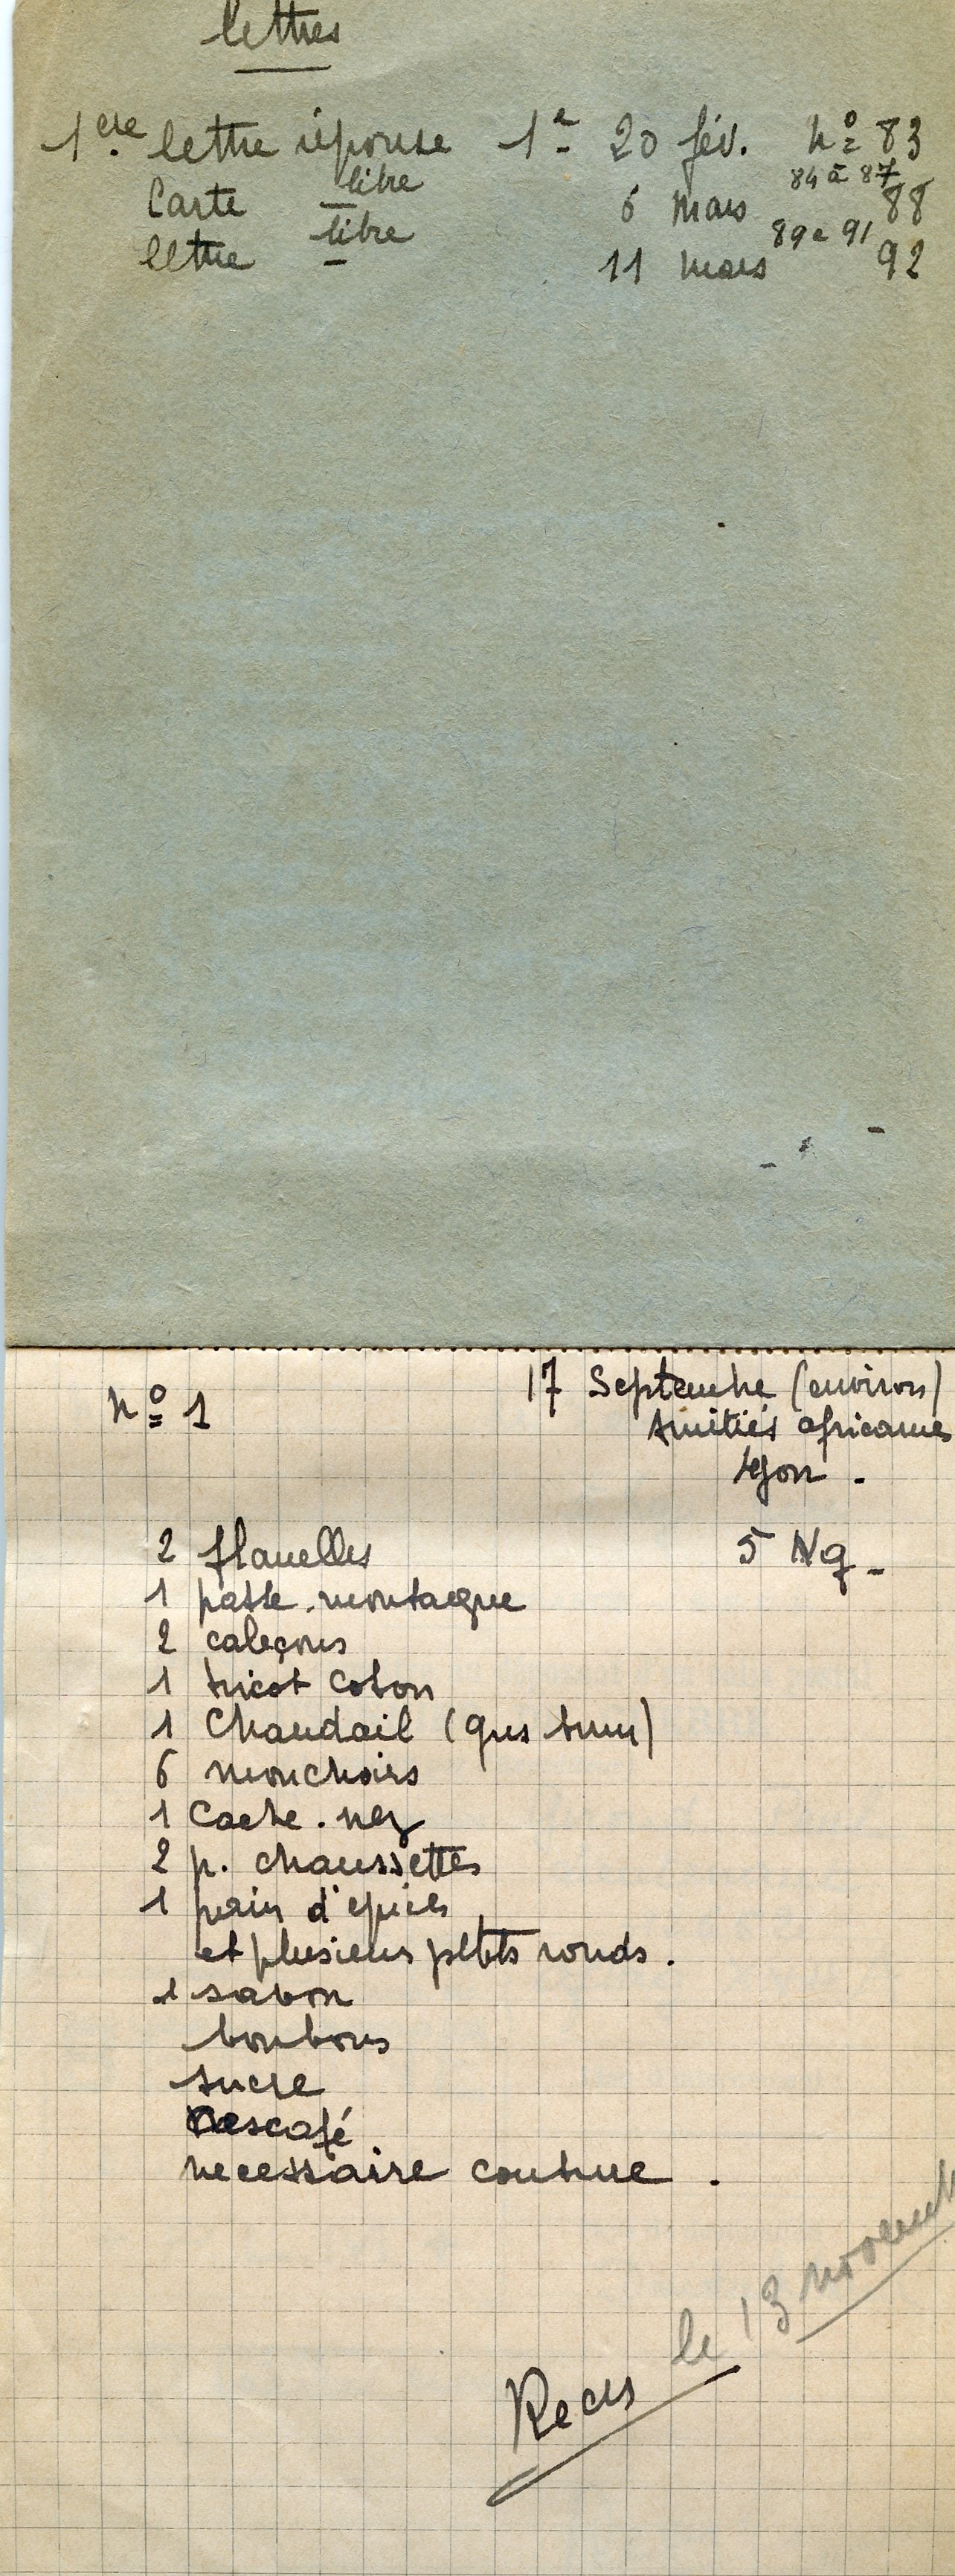 lettres
1ere lettre réponse 1e 20 fév. n° 83
84 à 87
Carte libre 6 mars 88
89 a 91
lettre libre 11 mars 92
n° 1 17 Septembre (environ)
Amitiés africaines
Lyon -
2 flanelles 5 Kg -
1 passe-montagne
2 caleçons
1 tricot coton
1 Chandail (gris brun)
6 mouchoirs
1 Cache-nez
2 p. chaussettes
1 pain d'épices
et plusieurs petits ronds.
1 savon
bonbons
sucre
Nescafé
necessaire couture.
Recus le 13 novemb